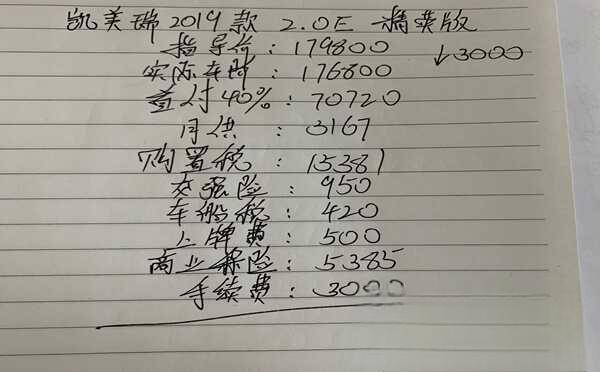 凯美瑞 2019款 2.0E 精英版
指导价：179800 ↓3000
实际车价：176800
首付40%：70720
月供：3167
购置税：15381
交强险：950
车船税：420
上牌费：500
商业保险：5385
手续费：3000